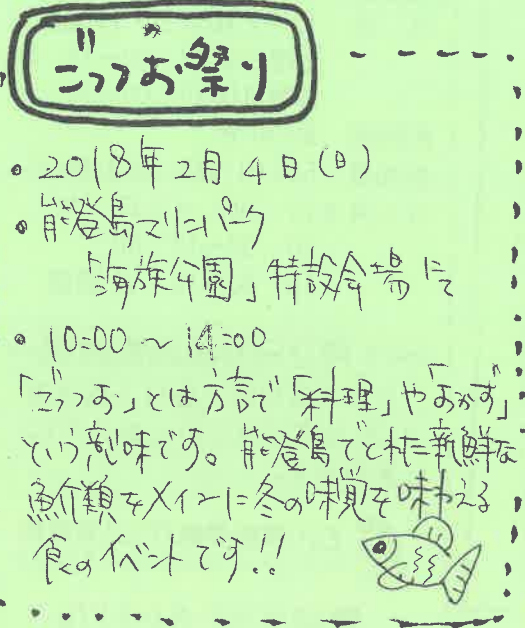 ごっつお祭り
• 2018年2月4日(日)
• 能登島マリンパーク
「海族公園」特設会場にて
• 10:00～14:00
「ごっつお」とは方言で「料理」や「おかず」
という意味です。能登島でとれた新鮮な
魚介類をメインに冬の味覚を味わえる
食のイベントです!!